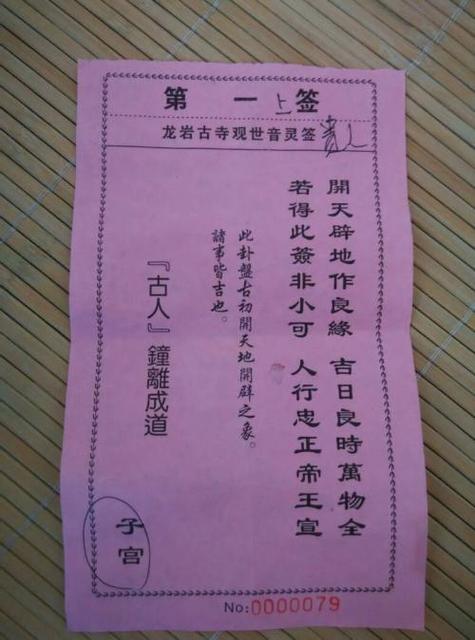 第一上签
龙岩古寺观世音灵签 貴人
開天辟地作良緣 吉日良時萬物全
若得此簽非小可 人行忠正帝王宣
此卦盤古初開天地開辟之象。
諸事皆吉也。
『古人』鐘離成道
子宫
No:0000079